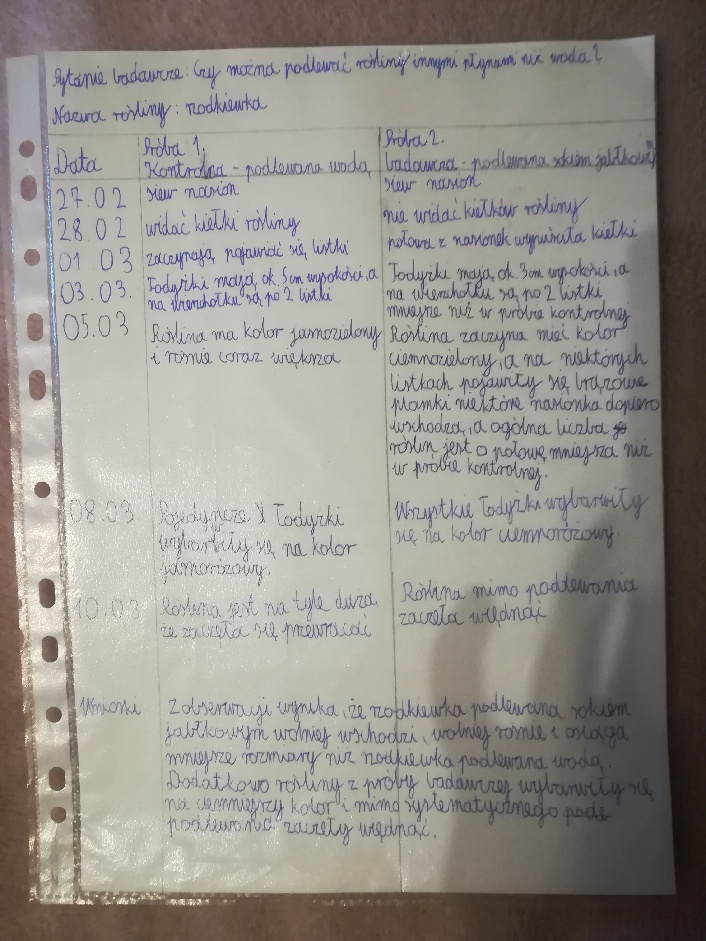 Pytanie badawcze: Czy można podlewać rośliny innymi płynami niż woda?
Nazwa rośliny: rzodkiewka
Data
Próba 1.
Kontrolna - podlewana wodą
Próba 2.
badawcza - podlewana sokiem jabłkowym
27.02
siew nasion
siew nasion
28.02
widać kiełki rośliny
nie widać kiełków rośliny
01 03
zaczynają pojawiać się listki
połowa z nasionek wypuściła kiełki
03.03.
Łodyżki mają ok. 5cm wysokości, a
na wierzchołku są po 2 listki
Łodyżki mają ok. 3cm wysokości, a
na wierzchołku są po 2 listki
mniejsze niż w próbie kontrolnej
05.03
Roślina ma kolor jasnozielony
i rośnie coraz większa
Roślina zaczyna mieć kolor
ciemnozielony, a na niektórych
listkach pojawiły się brązowe
plamki niektóre nasionka dopiero
wschodzą, a ogólna liczba
roślin jest o połowę mniejsza niż
w próbie kontrolnej.
08.03
Pojedyncze łodyżki
wybarwiły się na kolor
jasnoróżowy.
Wszystkie łodyżki wybarwiły
się na kolor ciemnoróżowy.
10.03
Roślina jest na tyle duża,
że zaczęła się przewracać
Roślina mimo podlewania
zaczęła więdnąć
Wnioski
Z obserwacji wynika, że rzodkiewka podlewana sokiem
jabłkowym wolniej wschodzi, wolniej rośnie i osiąga
mniejsze rozmiary niż rzodkiewka podlewana wodą.
Dodatkowo rośliny z próby badawczej wybarwiły się
na ciemniejszy kolor i mimo systematycznego
podlewania zaczęły więdnąć.